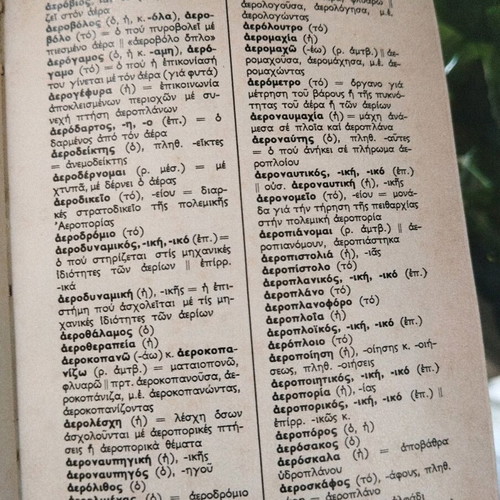 ζεῖ στόν ἀέρα
ἀεροβόλος (ὁ, ἡ, κ. -όλα), ἀερο-
βόλο (τό) = ὁ πού πυροβολεῖ μέ
πιεσμένο ἀέρα || «ἀεροβόλο ὅπλο»
ἀερόγαμος (ὁ, ἡ κ. -αμη), ἀερό-
γαμο (τό) = ὁ πού ἡ ἐπικονίασή
του γίνεται μέ τόν ἀέρα (γιά φυτά)
ἀερογέφυρα (ἡ) = ἐπικοινωνία
ἀποκλεισμένων περιοχῶν μέ συ-
νεχή πτήση ἀεροπλάνων
ἀερόδαρτος, -η, -ο (ἐπ.) = ὁ
δαρμένος ἀπό τόν ἀέρα
ἀεροδείκτης (ὁ), πληθ. -εῖκτες
= ἀνεμοδείκτης
ἀεροδέρνομαι (ρ. μέσ.) = μέ
χτυπᾶ, μέ δέρνει ὁ ἀέρας
ἀεροδικεῖο (τό), -είου = διαρ-
κές στρατοδικεῖο τῆς πολεμικῆς
Ἀεροπορίας
ἀεροδρόμιο (τό)
ἀεροδυναμικός, -ική, -ικό (ἐπ.) =
ὁ πού στηρίζεται στίς μηχανικές
ἰδιότητες τῶν ἀερίων || ἐπίρρ.
-ικά
ἀεροδυναμική (ἡ), -ικῆς = ἡ ἐπι-
στήμη πού ἀσχολεῖται μέ τίς μη-
χανικές ἰδιότητες τῶν ἀερίων
ἀεροθάλαμος (ὁ)
ἀεροθεραπεία (ἡ)
ἀεροκοπανῶ (-άω) κ. ἀεροκοπα-
νίζω (ρ. ἀμτβ.) = ματαιοπονῶ,
φλυαρῶ || πρτ. ἀεροκοπανοῦσα, ἀε-
ροκοπάνιζα, μ.ἐ. ἀεροκοπανώντας,
ἀεροκοπανίζοντας
ἀερολέσχη (ἡ) = λέσχη ὅσων
ἀσχολοῦνται μέ ἀεροπορικές πτή-
σεις ἤ ἀεροπορικά θέματα
ἀεροναυπηγική (ἡ), -ικῆς
ἀεροναυπηγός (ὁ), -ηγοῦ
ἀερόλιθος (ὁ)
= ἀεροδρόμιο
ἀερολογοῦσα, ἀερολόγησα, μ.ἐ.
ἀερολογώντας
ἀερόλουτρο (τό)
ἀερομαχία (ἡ)
ἀερομαχῶ (-έω) (ρ. ἀμτβ.) || ἀε-
ρομαχοῦσα, ἀερομάχησα, μ.ἐ. ἀε-
ρομαχώντας
ἀερόμετρο (τό) = ὄργανο γιά
μέτρηση τοῦ βάρους ἤ τῆς πυκνό-
τητας τοῦ ἀέρα ἤ τῶν ἀερίων
ἀεροναυμαχία (ἡ) = μάχη ἀνά-
μεσα σέ πλοῖα καί ἀεροπλάνα
ἀεροναύτης (ὁ), πληθ. -αῦτες
= ὁ πού ἀνήκει σέ πλήρωμα ἀε-
ροπλοίου
ἀεροναυτικός, -ική, -ικό (ἐπ.)
|| οὐσ. ἀεροναυτική (ἡ), -ικῆς
ἀερονομεῖο (τό), -είου = μονά-
δα γιά τήν τήρηση τῆς πειθαρχίας
στήν πολεμική ἀεροπορία
ἀεροπιάνομαι (ρ. ἀμτβ.) || ἀε-
ροπιανόμουν, ἀεροπιάστηκα
ἀεροπιστολιά (ἡ), -ιᾶς
ἀεροπίστολο (τό)
ἀεροπλανικός, -ική, -ικό (ἐπ.)
ἀεροπλάνο (τό)
ἀεροπλανοφόρο (τό)
ἀεροπλοΐα (ἡ)
ἀεροπλοϊκός, -ική, -ικό (ἐπ.)
ἀερόπλοιο (τό)
ἀεροποίηση (ἡ), -οίησης κ. -οιή-
σεως, πληθ. -οιήσεις
ἀεροποιητικός, -ική, -ικό (ἐπ.)
ἀεροπορία (ἡ), -ίας
ἀεροπορικός, -ική, -ικό (ἐπ.) ||
ἐπίρρ. -ικῶς κ.
ἀεροπόρος (ὁ, ἡ)
ἀερόσακος (ὁ)
ἀερόσκαλα (ἡ) = ἀποβάθρα
ὑδροπλάνου
ἀεροσκάφος (τό), -άφους, πληθ.